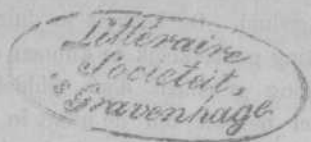 Littéraire
Societeit,
's Gravenhage